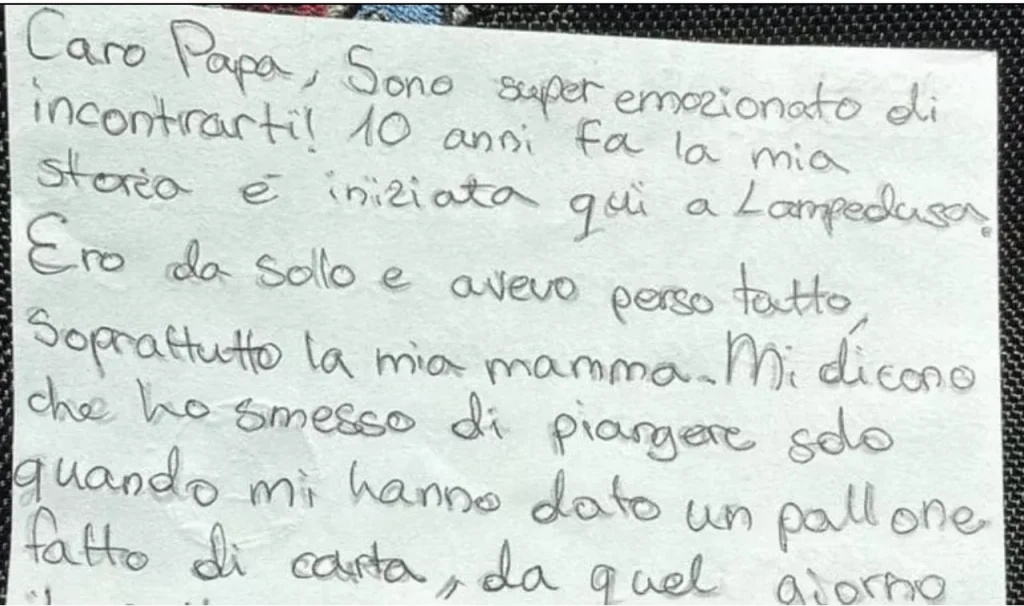 Caro Papa, Sono super emozionato di
incontrarti! 10 anni fa la mia
storia é iniziata qui a Lampedusa.
Ero da sollo e avevo perso tutto,
Soprattutto la mia mamma. Mi dicono
che ho smesso di piangere solo
quando mi hanno dato un pallone
fatto di carta, da quel giorno
il